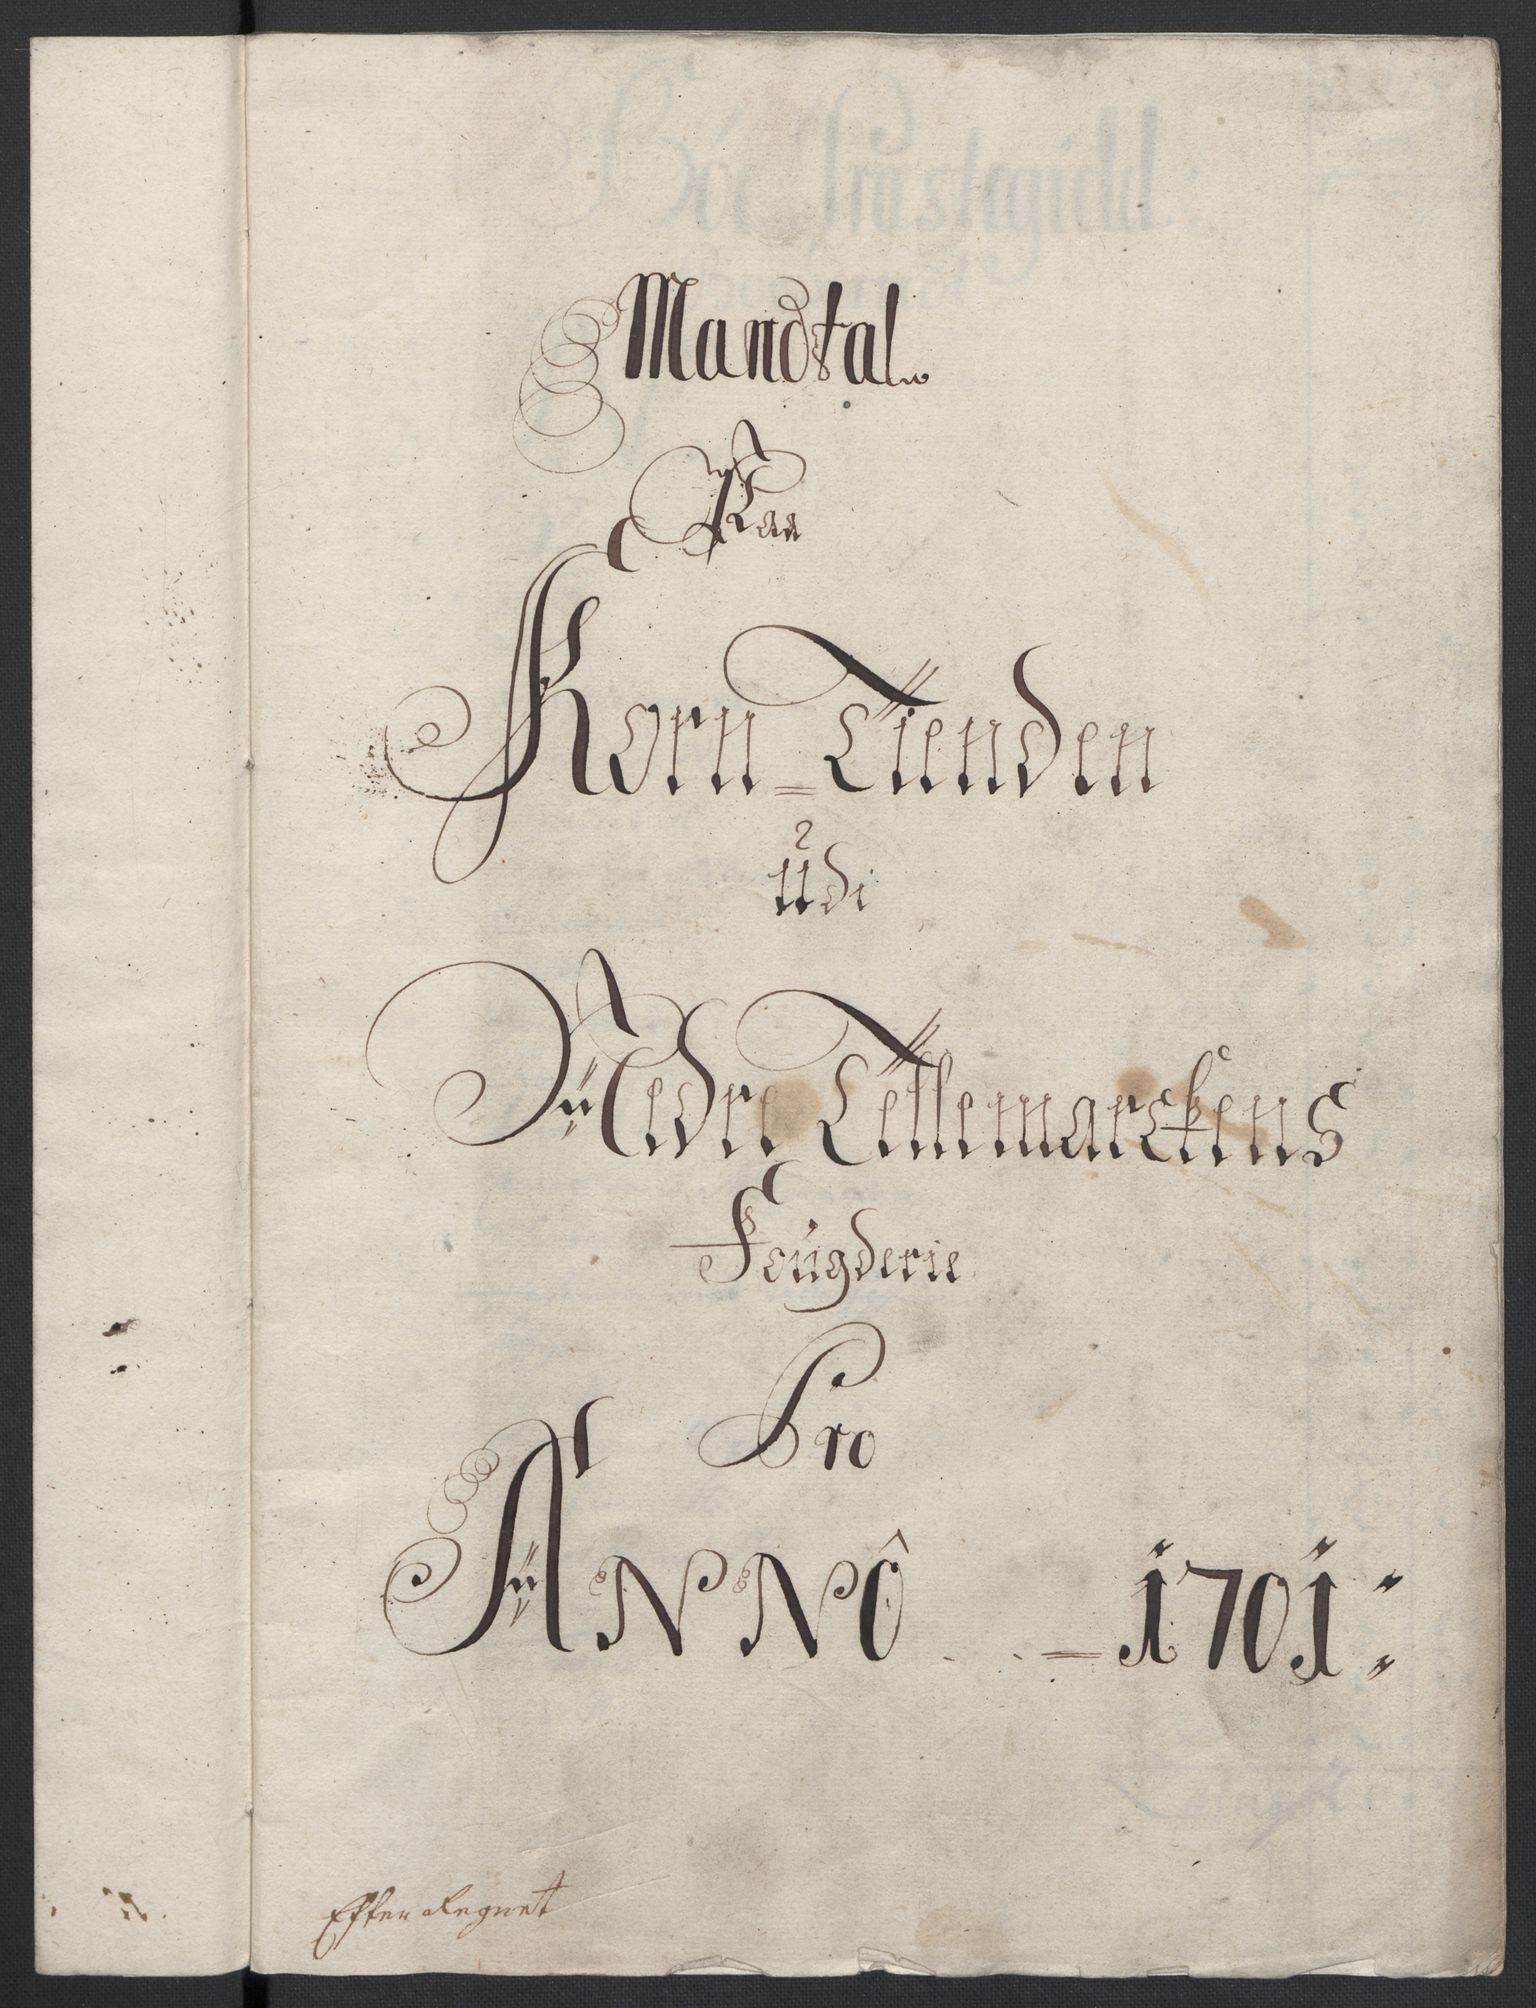 Mandtal
Paa
Korn=Tienden
udi
Nedre Tellemarckens
Fougderie
Pro
ANNÔ = 1701:
Efter Regnet